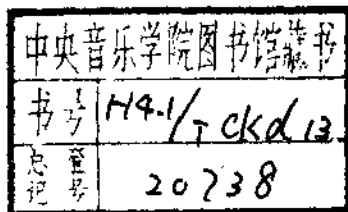 中央音乐学院图书馆藏书
书号 H4.1/T ckd 13
总登记号 20738